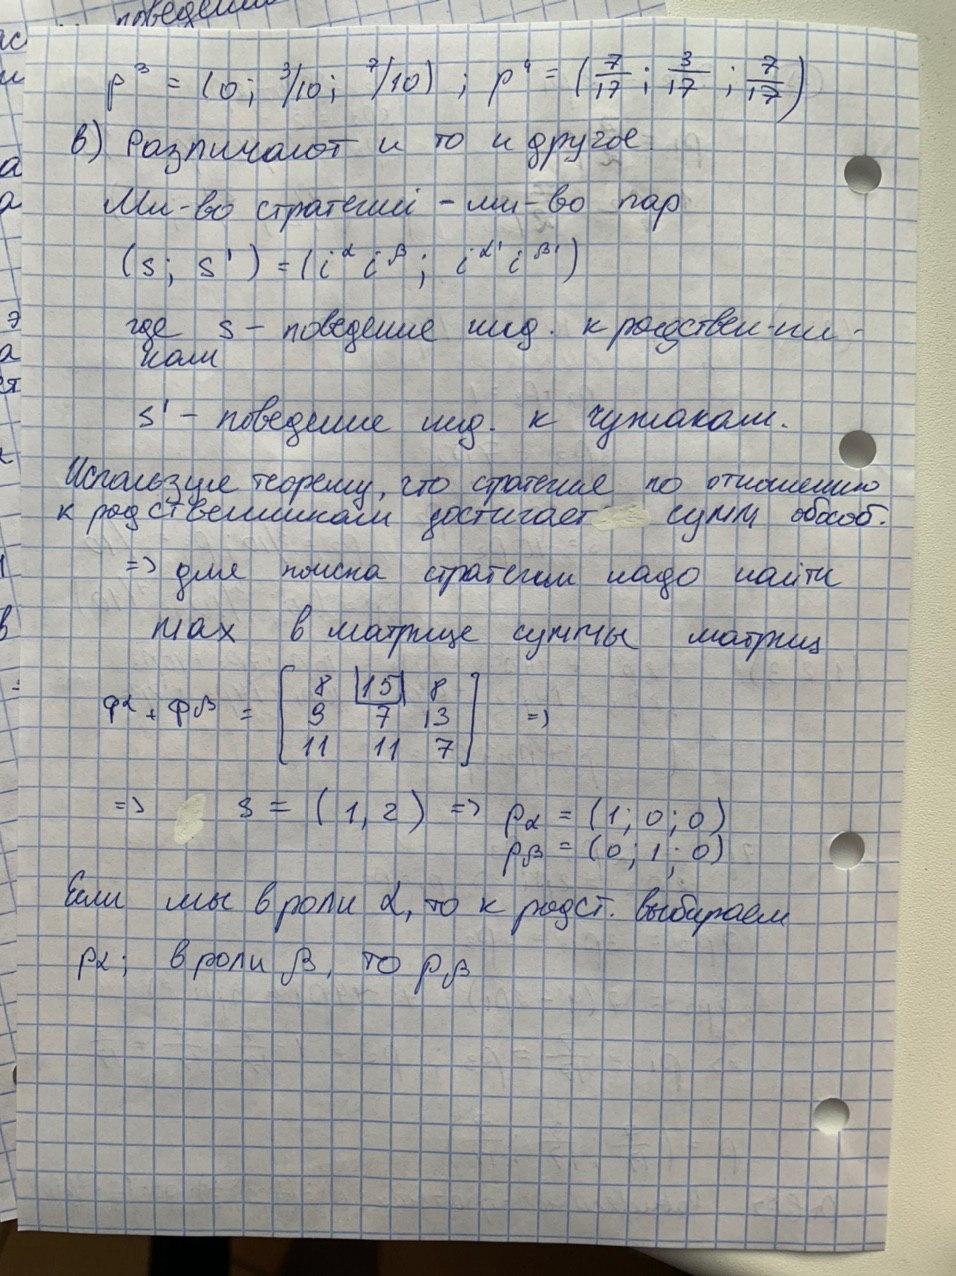 поведени
p³ = (0; 3/10; 7/10) ; p⁴ = (7/17; 3/17; 7/17)
в) Различают и то и другое.
Мн-во стратегий - мн-во пар
(s; s') = (i^α i^β; i^α' i^β')
где s - поведение инд. к родствен-ни-
кам
s' - поведение инд. к чужакам.
Используем теорему, что стратегия по отношению
к родственникам достигает сумм обособ.
=> для поиска стратегии надо найти
max в матрице суммы матриц
φα + φβ = [ 8 |15| 8
9 7 13
11 11 7 ] =>
=> s = (1, 2) => pα = (1; 0; 0)
pβ = (0; 1; 0)
Если мы в роли α, то к родст. выбираем
pα; в роли β, то pβ